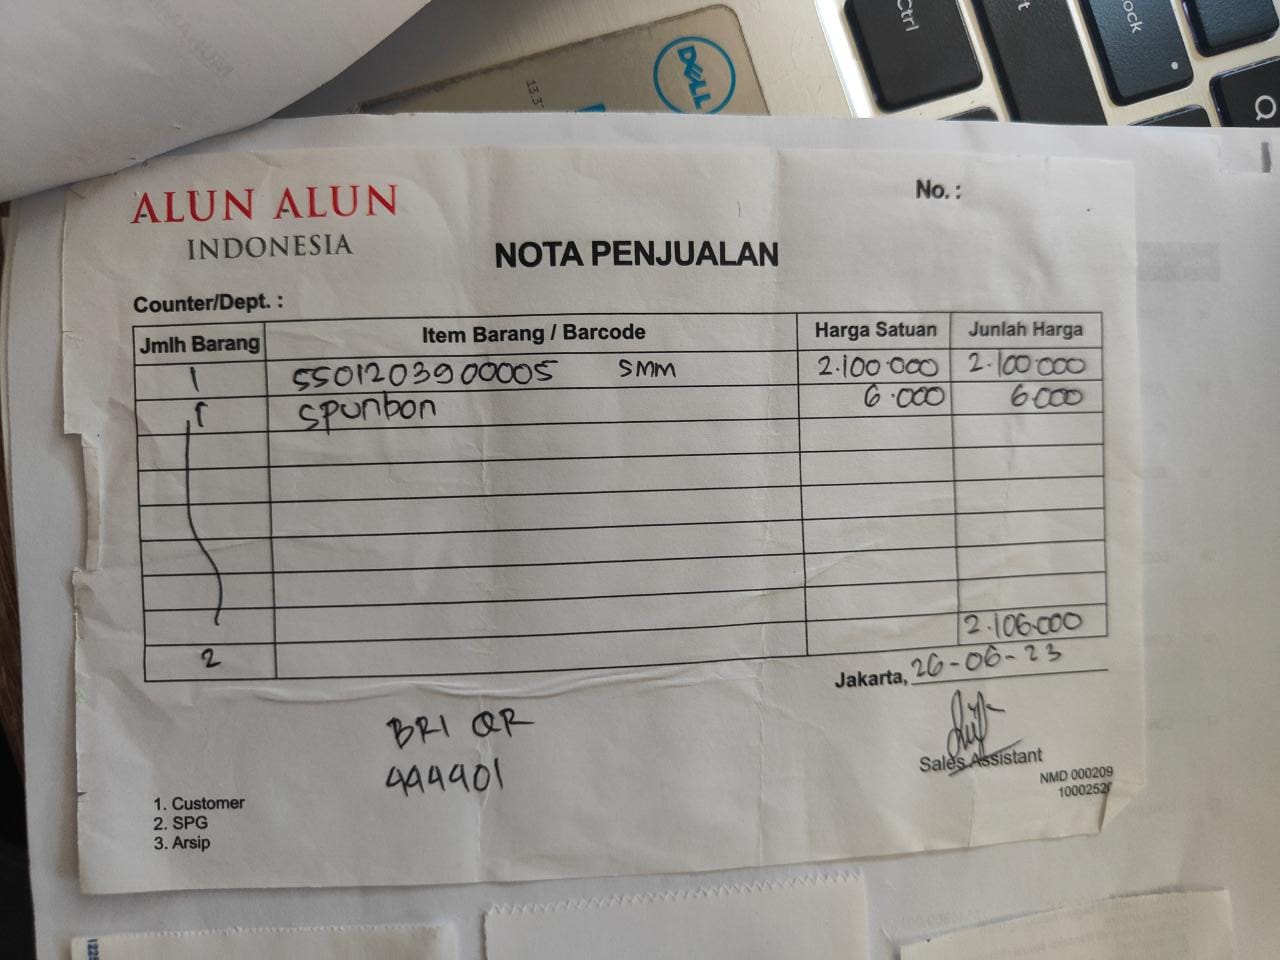 Ctrl
ock
Q
DELL
13.3"
ALUN ALUN
INDONESIA
No. :
NOTA PENJUALAN
Counter/Dept. :
Jmlh Barang Item Barang / Barcode Harga Satuan Junlah Harga
1 5501203900005 SMM 2.100.000 2.100.000
1 Spunbon 6.000 6.000
2.106.000
2
Jakarta, 26-06-23
BRI QR
444401
Sales Assistant
NMD 000209
1000252
1. Customer
2. SPG
3. Arsip